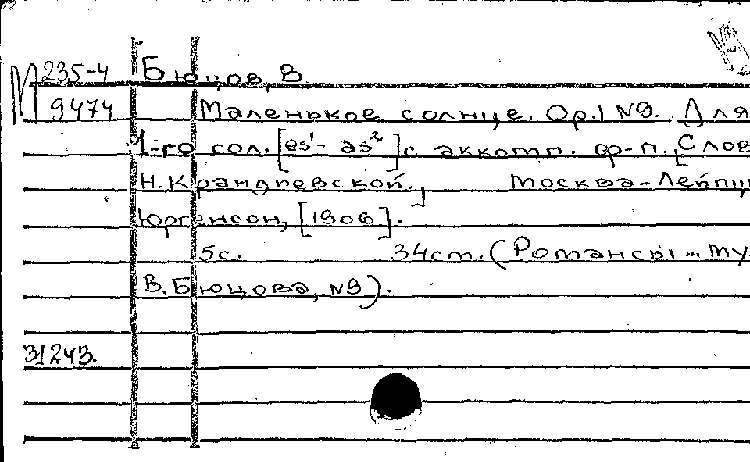 М 235-4 Бюцов, В.
9474 Маленькое солнце. Op.1 №9. Для
1-го гол. [es¹- as²] с аккомп. ф-п. [Слов
Н. Крандиевской.] Москва-Лейпц
Юргенсон, [1906].
5с. 34см. (Романсы... му
В. Бюцова, №9).
31243.